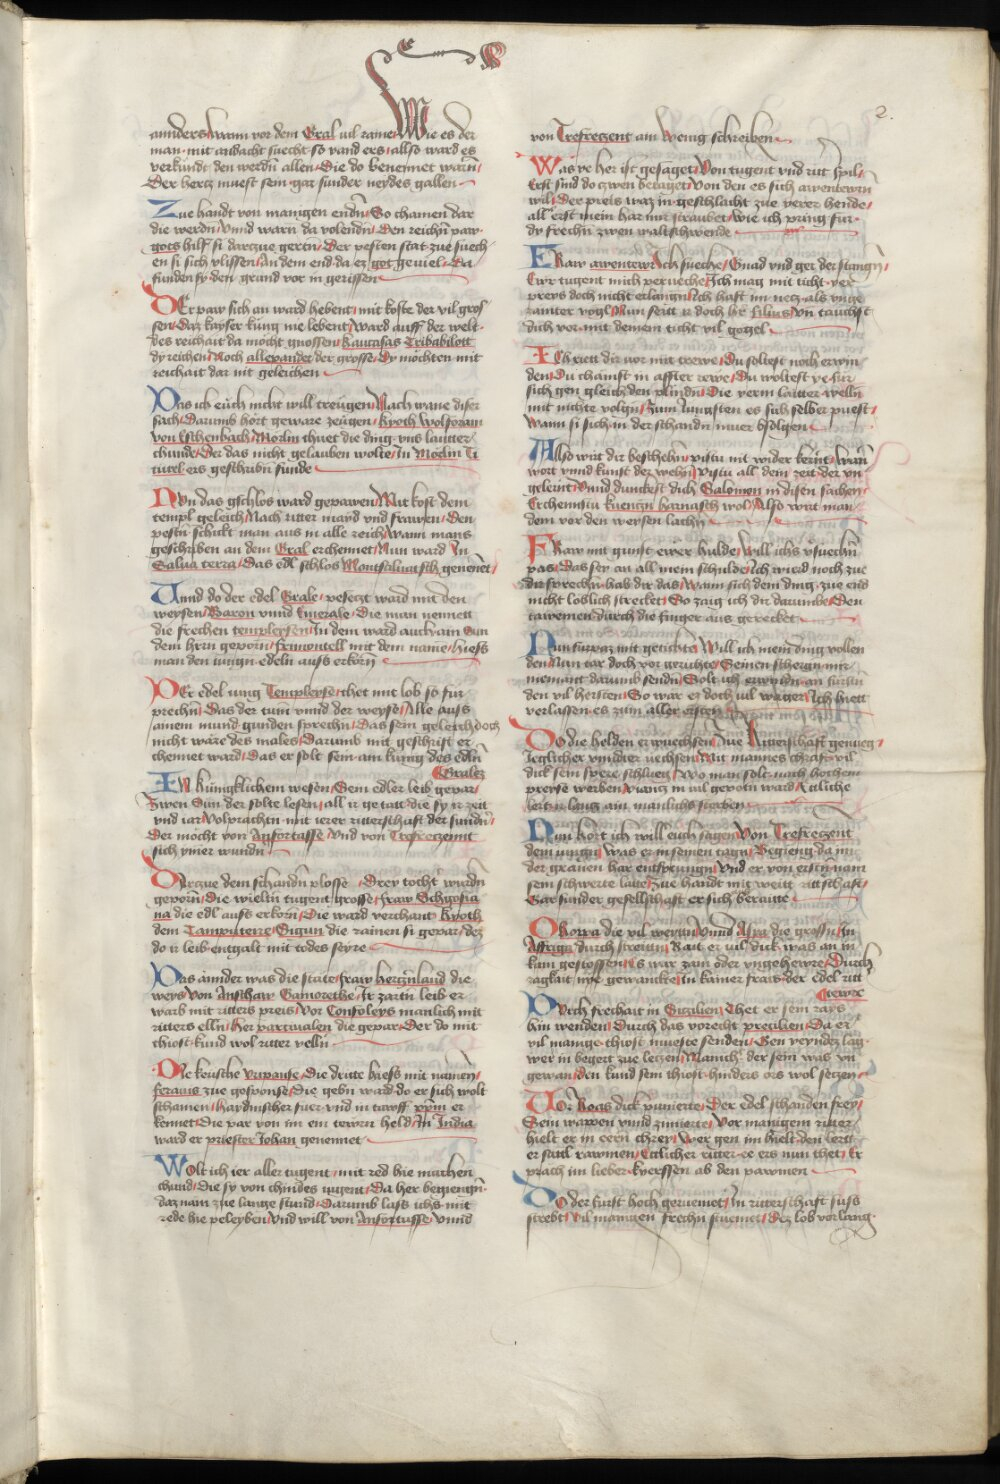 2.
annders wann vor dem Gral vil raine Wie es der
man mit andacht suecht so vand ers allso ward es
verkundt den werdn allen Die do benennet warn
Der hertz muest sein gar sunder neydes gallen
Zue handt von manigen endn So chamen dar
die werdn Vnnd warn da volendn Den reichn paw
gots hilf si darzue gertn Der pesten stat zue suech
en si sich vlissen An dem end da ez got geviel Da
funden sy den grund vor in gerissen
Der paw sich an ward hebent mit koste der vil gros
sen daz kayser kung nie lebent Ward auff der welt
des reichait da mocht gnossen Kaukasas Tribabilott
dy reichen Noch allexander der grosse Dy mochten mit
reichait dar nit geleichen
Das ich euch nicht will treugen Nach wane diser
sach Darumb hort geware zeugen Kyoth Wolforam
von Eschenbach Morlin thuet die ding vns lautter
chunde Der das nicht gelauben wolte In Morlin Ti
turel ers geschribn funde
Nun das gschlos ward gepawen Mit kost dem
templ geleich Nach ritter mayd vnd frawen Den
pestn schickt man aus in alle reich Wann mans
geschriben an dem Gral erchennet Nun ward In
Salua terra Das edl schlos Montsaluatsch genennet
Unnd do der edel Grale vesetzt ward mit den
weysen Baron vnnd Emerale Die man nennett
die frechen templeysen In dem ward auch ain Sun
dem hern geporn frimontell mit dem name hiess
man den iungn edeln auss erkorn
Der edel iung Templeyse thet mit lob so fur
prechn Das der tum vnnd der weyse Alle auss
ainem mund gunden sprechn Das sein geleich doch
nicht ware des males Darumb mit geschrift er
chennet ward Das er solt sein am kunig des edln
Grales
In kunigklichem wesen Sein edler leib gepar
Zwen Sun der solte lesen all ir getatt die sy ir zeit
vnd iar Volprachtn mit irer ritterschaft der sundn
Der mocht von Anfortasse Vnd von Trefretzennt
sich ymer wundn
Darzue dem schandn plosse Drey tochtr wurdn
geporn Die wieltn tugent grosse fraw Schgosia
na die edl auss erkorn Die ward verchant Kyoth
dem Tamputerre Sigun die rainen si gepar dez
do ir leib entgalt mit todes seyre
Das annder was die state fraw hertznland die
weys Von Anschaw Gamorethe Ir zartn leib er
warb mit ritters preis Vor Consoleys manlich mit
ritters elln Her partzivalen die gepar Der do mit
thiost kund wol ritter velln
Die keusche Vrpanse Die dritte hiess mit namen
feravis zue gesponse Die gebn ward do er sich wolt
schamen haydnischer sit vnd in tauff ym er
kennet Die par von im ein tewrn held In India
ward er priester Johan genennet
Wolt ich ier aller tugent mit red hie machen
chund Die sy von chindes iugent Da her begiengn
daz nam zue lange stund Darumb lass ichs mit
rede hie peleyben Vnd will von Anfortasse vnnd
von Trefretzent am wenig schreiben
Was ye her ist gesaget Von tugent vnd ritt spil
Erst sind do tzwen betaget Von den es sich awentewrn
wil Der preis waz in geschlacht zue yerer hende
all erst mein har mir straubet Wie ich pring fur
dy frechn zwen waltschwende
Fraw awentewr Ich sueche Gnad vnd get der stangn
Ewr tugent mich peruech Ich mag mit ticht yer
preys doch nicht erlangn Ich haft im netz als vnge
zamter vogl Nun seitt ir doch hie filius Vn tauchst
dich vor mit deinem ticht vil gogel
Ich riett dir vor mit trewe Du soltest noch erwin
den Du chainst in affster rewe Du woltest ye fur
sich gen gleich den plindn Die yerm lautter welln
mit nichte volgn Zum Jungsten es sich selber puest
Wann si sich in der schandn muer bsolgen
Allso wirt dir beschehn Vistu nit wider kernt Wann
wort vnnd kunst der wehn Vistu all dem zeit der vn
gelernt Vnnd dunckest dich Salomon in disen sachen
Erchennstu kuentzn harnasch wol Also wirt man
dem vor den weysen lachn
Fraw mit gunst ewer hulde Will ichs vsuechn
pas Das sey an all mein schulde Ich wird noch zue
dir sprechn hab dir das Wann sich dem ding zue end
nicht loslich strecket So zaig ich dir darumbe Den
tawmen durch die finger aus gerecket
Nun furpaz mit getichte Will ich mein ding vollen
den Nun tar doch vor geruchte Seinen schergn mir
niemant darumb sendn Solt ich erwindn an furstn
den vil hersten So war er doch vil wager Ich hiett
verlassen es zum aller ersten
Do die helden erwuechsen Zue Ritterschaft genueg
Ieglicher vnnder vechsen Mit mannes chraft vil
dick sein spere schlueg Wo man solt nach hochem
preyse werben Wanitz in vil gepotn ward Ettliche
lert ir lantz am manlichs sterben
Nun hort ich will euch sagen Von Trefretzent
dem iungn Was er in seinen tagn Begieng da im
der grauen har entsprungn Vnd er von erstn nam
sein schwerte laite Zue handt mit weitt rittschaft
Gar sunder gesellschaft er sich beraitte
Korppa die vil weyttn Vnnd Asya die grossn In
Affriga durch streittn Rait er vil dick was an in
kam gestossen Es war zam oder vngehewre Durch
zaghait nye gewanckte in kainer frais der edel ritt
tewre
Durch frechait in Sicilien Thet er sein rays
hin wenden Durch das vorecht precilien Da er
vil manige thiost mueste senden Gen veyndez lag
wer in begert zue letzen Manich der sein was vn
gewan den kund sein thiost hinders ors wol setzen
Vor Roas dick punierte Der edel schanden frey
Sein wappen vnnd zimierte Vor manigem ritter
hielt er in eern chrey Wer gen im hielt den lertt
er sattl rawmen Ettlicher ritter ee ers nun thet Er
prach im lieber kyerssen ab den pawmen
Do der furst hoch geruemet In ritterschaft suss
strebt Vil manigen frechn stuemet Dez lob vor lang